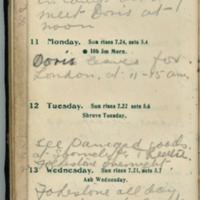 meet Doris at
noon
11 Monday. Sun rises 7.24, sets 5.4
● 10h 5m Morn.
Doris leaves for
London, at 11-45 am,
12 Tuesday. Sun rises 7.22 sets 5.6
Shrove Tuesday.
see damaged goods
at
13 Wednesday. Sun rises 7.21, sets 5.7
Ash Wednesday.
Folkestone all day,